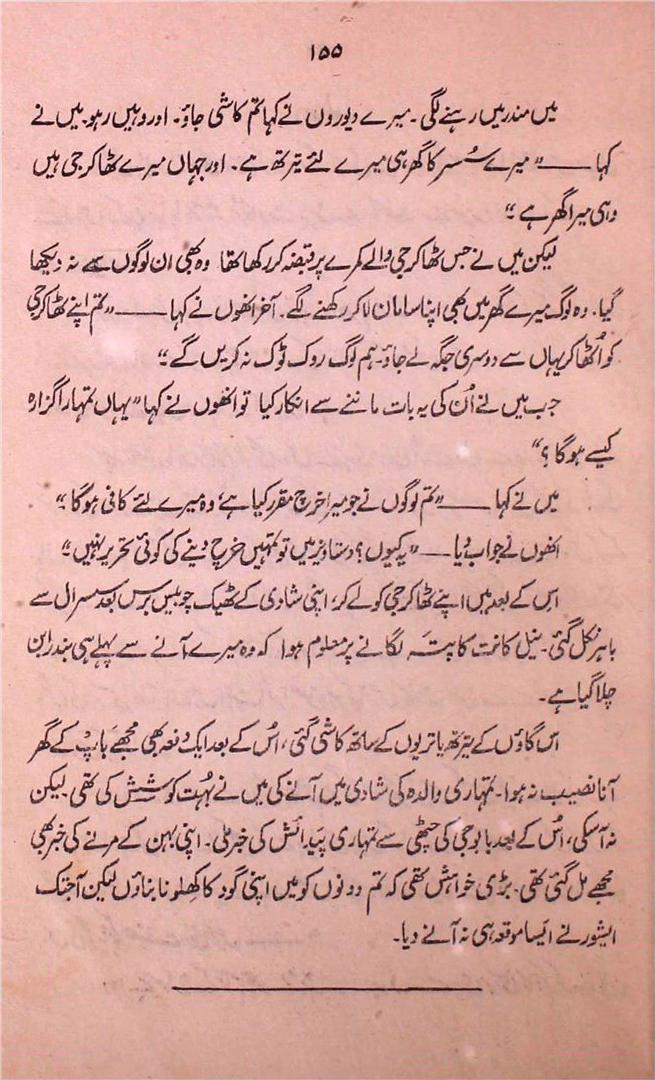 ۱۵۵
میں مندر میں رہنے لگی ۔ میرے دیوروں نے کہا تم کاشی جاؤ ۔ اور وہیں رہو ۔ میں نے
کہا ——— ”میرے سُسر کا گھر ہی میرے لئے تیرتھ ہے ۔ اور جہاں میرے ٹھاکر جی ہیں
وہی میرا گھر ہے “۔
لیکن میں نے جس ٹھاکر جی والے کمرے پر قبضہ کر رکھا تھا وہ بھی ان لوگوں سے نہ دیکھا
گیا ۔ وہ لوگ میرے گھر میں بھی اپنا سامان لا کر رکھنے لگے ۔ آخر انھوں نے کہا ——— ”تم اپنے ٹھاکر جی
کو اُٹھا کر یہاں سے دوسری جگہ لے جاؤ ۔ ہم لوگ روک ٹوک نہ کریں گے “۔
جب میں نے اُن کی یہ بات ماننے سے انکار کیا تو انھوں نے کہا ”یہاں تمہارا گزارہ
کیسے ہوگا ؟“
میں نے کہا ——— ”تم لوگوں نے جو میرا خرچ مقرر کیا ہے، وہ میرے لئے کافی ہوگا “۔
انھوں نے جواب دیا —— ”یہ کیوں؟ دستاویز میں تو تمہیں خرچ دینے کی کوئی تحریر نہیں “۔
اس کے بعد میں اپنے ٹھاکر جی کو لے کر، اپنی شادی کے ٹھیک چوبیس برس بعد سسرال سے
باہر نکل گئی ۔ نیل کانت کا پتہ لگانے پر معلوم ہوا کہ وہ میرے آنے سے پہلے ہی بندرابن
چلا گیا ہے ۔
اس گاؤں کے تیرتھ یاتریوں کے ساتھ کاشی گئی، اُس کے بعد ایک دفعہ بھی مجھے باپ کے گھر
آنا نصیب نہ ہوا ۔ تمہاری والدہ کی شادی میں آنے کی میں نے بہُت کوشش کی تھی ۔ لیکن
نہ آسکی، اُس کے بعد بابو جی کی چٹھی سے تمہاری پیدائش کی خبر ملی ۔ اپنی بہن کے مرنے کی خبر بھی
مجھے مل گئی تھی ۔ بڑی خواہش تھی کہ تم دونوں کو میں اپنی گود کا کھلونا بناؤں لیکن آجتک
ایشور نے ایسا موقعہ ہی نہ آنے دیا ۔